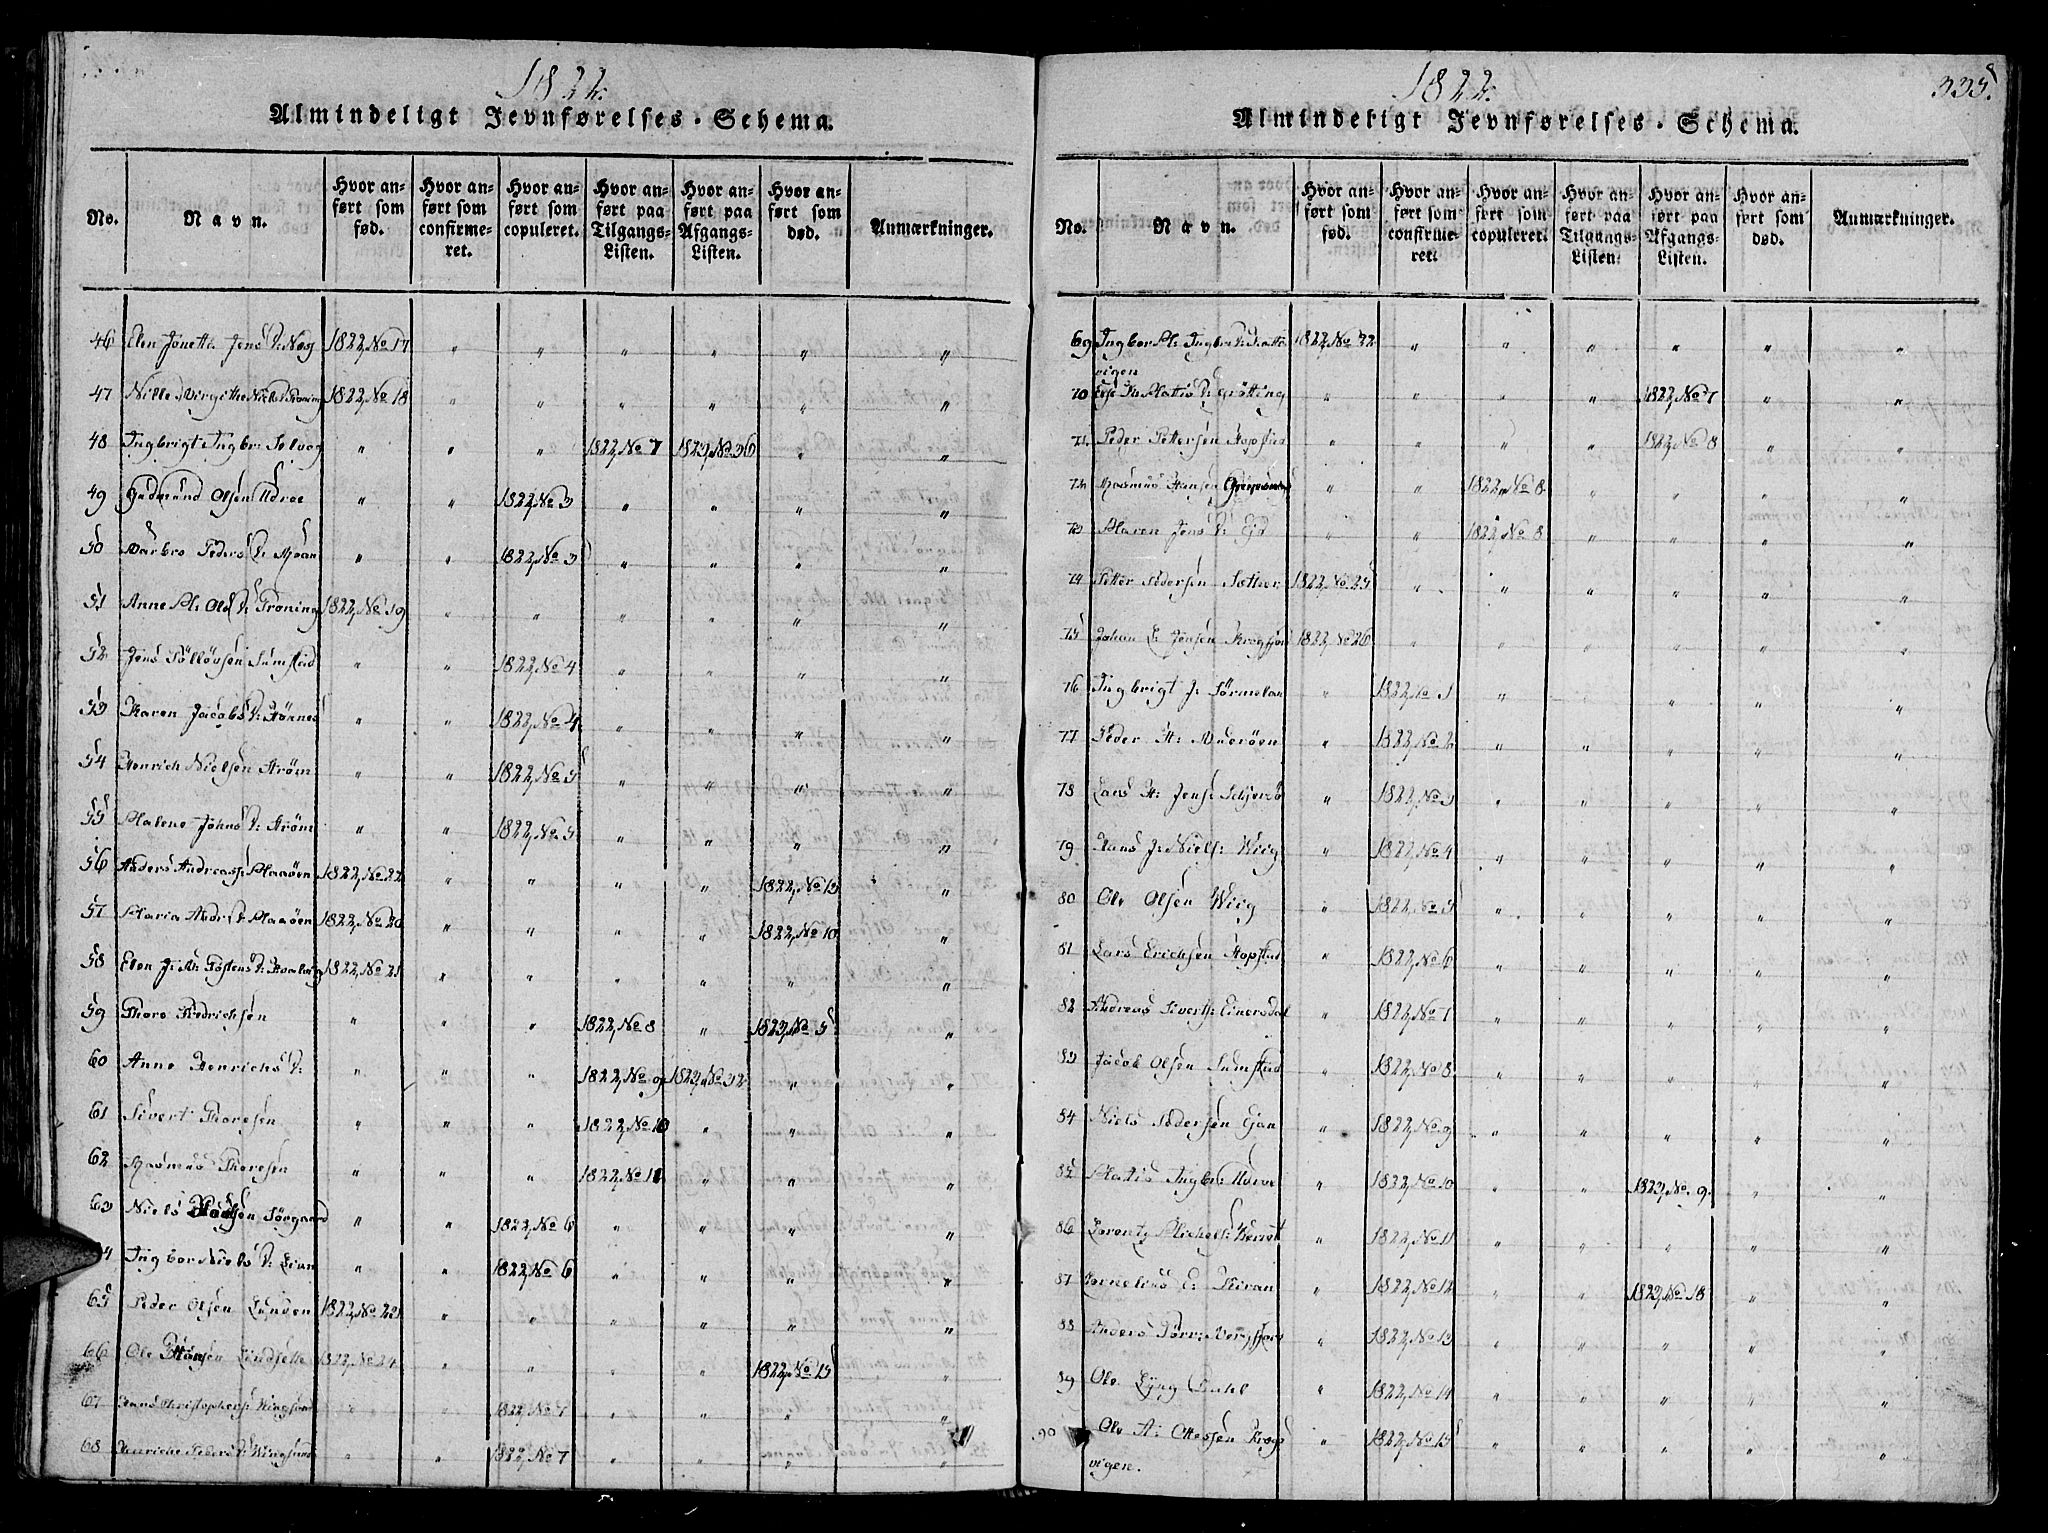 1822.
Almindeligt Jevnførelses-Schema.
No. Navn. Hvor anført som fød. Hvor anført som confirmeret. Hvor anført som copuleret. Hvor anført paa Tilgangs-Listen. Hvor anført paa Afgangs-Listen. Hvor anført som død. Anmærkninger.
46 Elen Jonette Jens D: 1822, No 17 " " " " " "
47 Nille Birgithe Niels D: 1822, No 18 " " " " " "
48 Ingbrigt Ingbr: Selvog " " " 1822, No 7 1823, No 36 " "
49 Gudmund Olsen " " 1822, No 3 " " " "
50 Barbro Peders D: Moan " " 1822, No 3 " " " "
51 Anne M: Ols D: Troning 1822, No 19 " " " " " "
52 Jens Tølløvsen Sumstad " " 1822, No 4 " " " "
53 Karen Jacobs D: " " 1822, No 4 " " " "
54 Henrich Nielsen Strøm " " 1822, No 5 " " " "
55 Malene Johns D: Strøm " " 1822, No 5 " " " "
56 Anders Andreass: Maaøen 1822, No 22 " " " " 1822, No 13 "
57 Maria Andr: D: Maaøen 1822, No 20 " " " " 1822, No 10 "
58 Elen J: M: Tostens D: 1822, No 21 " " " " " "
59 Thore Fredrichsen " " " 1822, No 8 " 1823, No 5 "
60 Anne Henrichs D: " " " 1822, No 9 1823, No 32 " "
61 Sivert Thoresen " " " 1822, No 10 " " "
62 Rasmus Thoresen " " " 1822, No 11 " " "
63 Niels Sørgaard " " 1822, No 6 " " " "
64 Ingbor Niels D: Lian " " 1822, No 6 " " " "
65 Peder Olsen Lunden 1822, No 23 " " " " " "
66 Ole Hansen Lindsette 1822, No 24 " " " " 1822, No 15 "
67 Hans Christophers: Vingsand " " 1822, No 7 " " " "
68 Henriche Peders D: Vingsund " " 1822, No 7 " " " "
1822.
335.
Almindeligt Jevnførelses-Schema.
No. Navn. Hvor anført som fød. Hvor anført som confirmeret. Hvor anført som copuleret. Hvor anført paa Tilgangs-Listen. Hvor anført paa Afgangs-Listen. Hvor anført som død. Anmærkninger.
69 Ingbor M: Ingbr: D: 1822, No 32 " " " " " "
vigen
70 Matis D: Grøtting " " " " 1822, No 7 " "
71 Peder Pettersen Hopstad " " " " 1822, No 8 " "
72 Rasmus Hansen " " 1822, No 8 " " " "
73 Maren Jens D: Eid " " 1822, No 8 " " " "
74 Petter Pedersen Sætter 1822, No 25 " " " " " "
75 Johan E: Jensen 1822, No 26 " " " " " "
76 Ingbrigt J: Sørmelan " 1822, No 1 " " " " "
77 Peder H: " 1822, No 2 " " " " "
78 Lars H: Jens: " 1822, No 3 " " " " "
79 Hans J: Niels: Wiig " 1822, No 4 " " " " "
80 Ole Olsen Wiig " 1822, No 5 " " " " "
81 Lars Erichsen Hopstad " 1822, No 6 " " " " "
82 Andreas Siverts: Einersdal " 1822, No 7 " " " " "
83 Jacob Olsen Sumstad " 1822, No 8 " " " " "
84 Niels Pedersen " 1822, No 9 " " " " "
85 Matis Ingbr: " 1822, No 10 " " 1823, No 9. " "
86 Lorentz Michels: " 1822, No 11 " " " " "
87 Cornelius C: Kiran " 1822, No 12 " " 1823, No 18 " "
88 Anders " 1822, No 13 " " " " "
89 Ole Lyng Dahl " 1822, No 14 " " " " "
90 Ole A: Ottessen " 1822, No 15 " " " " "
vigen.